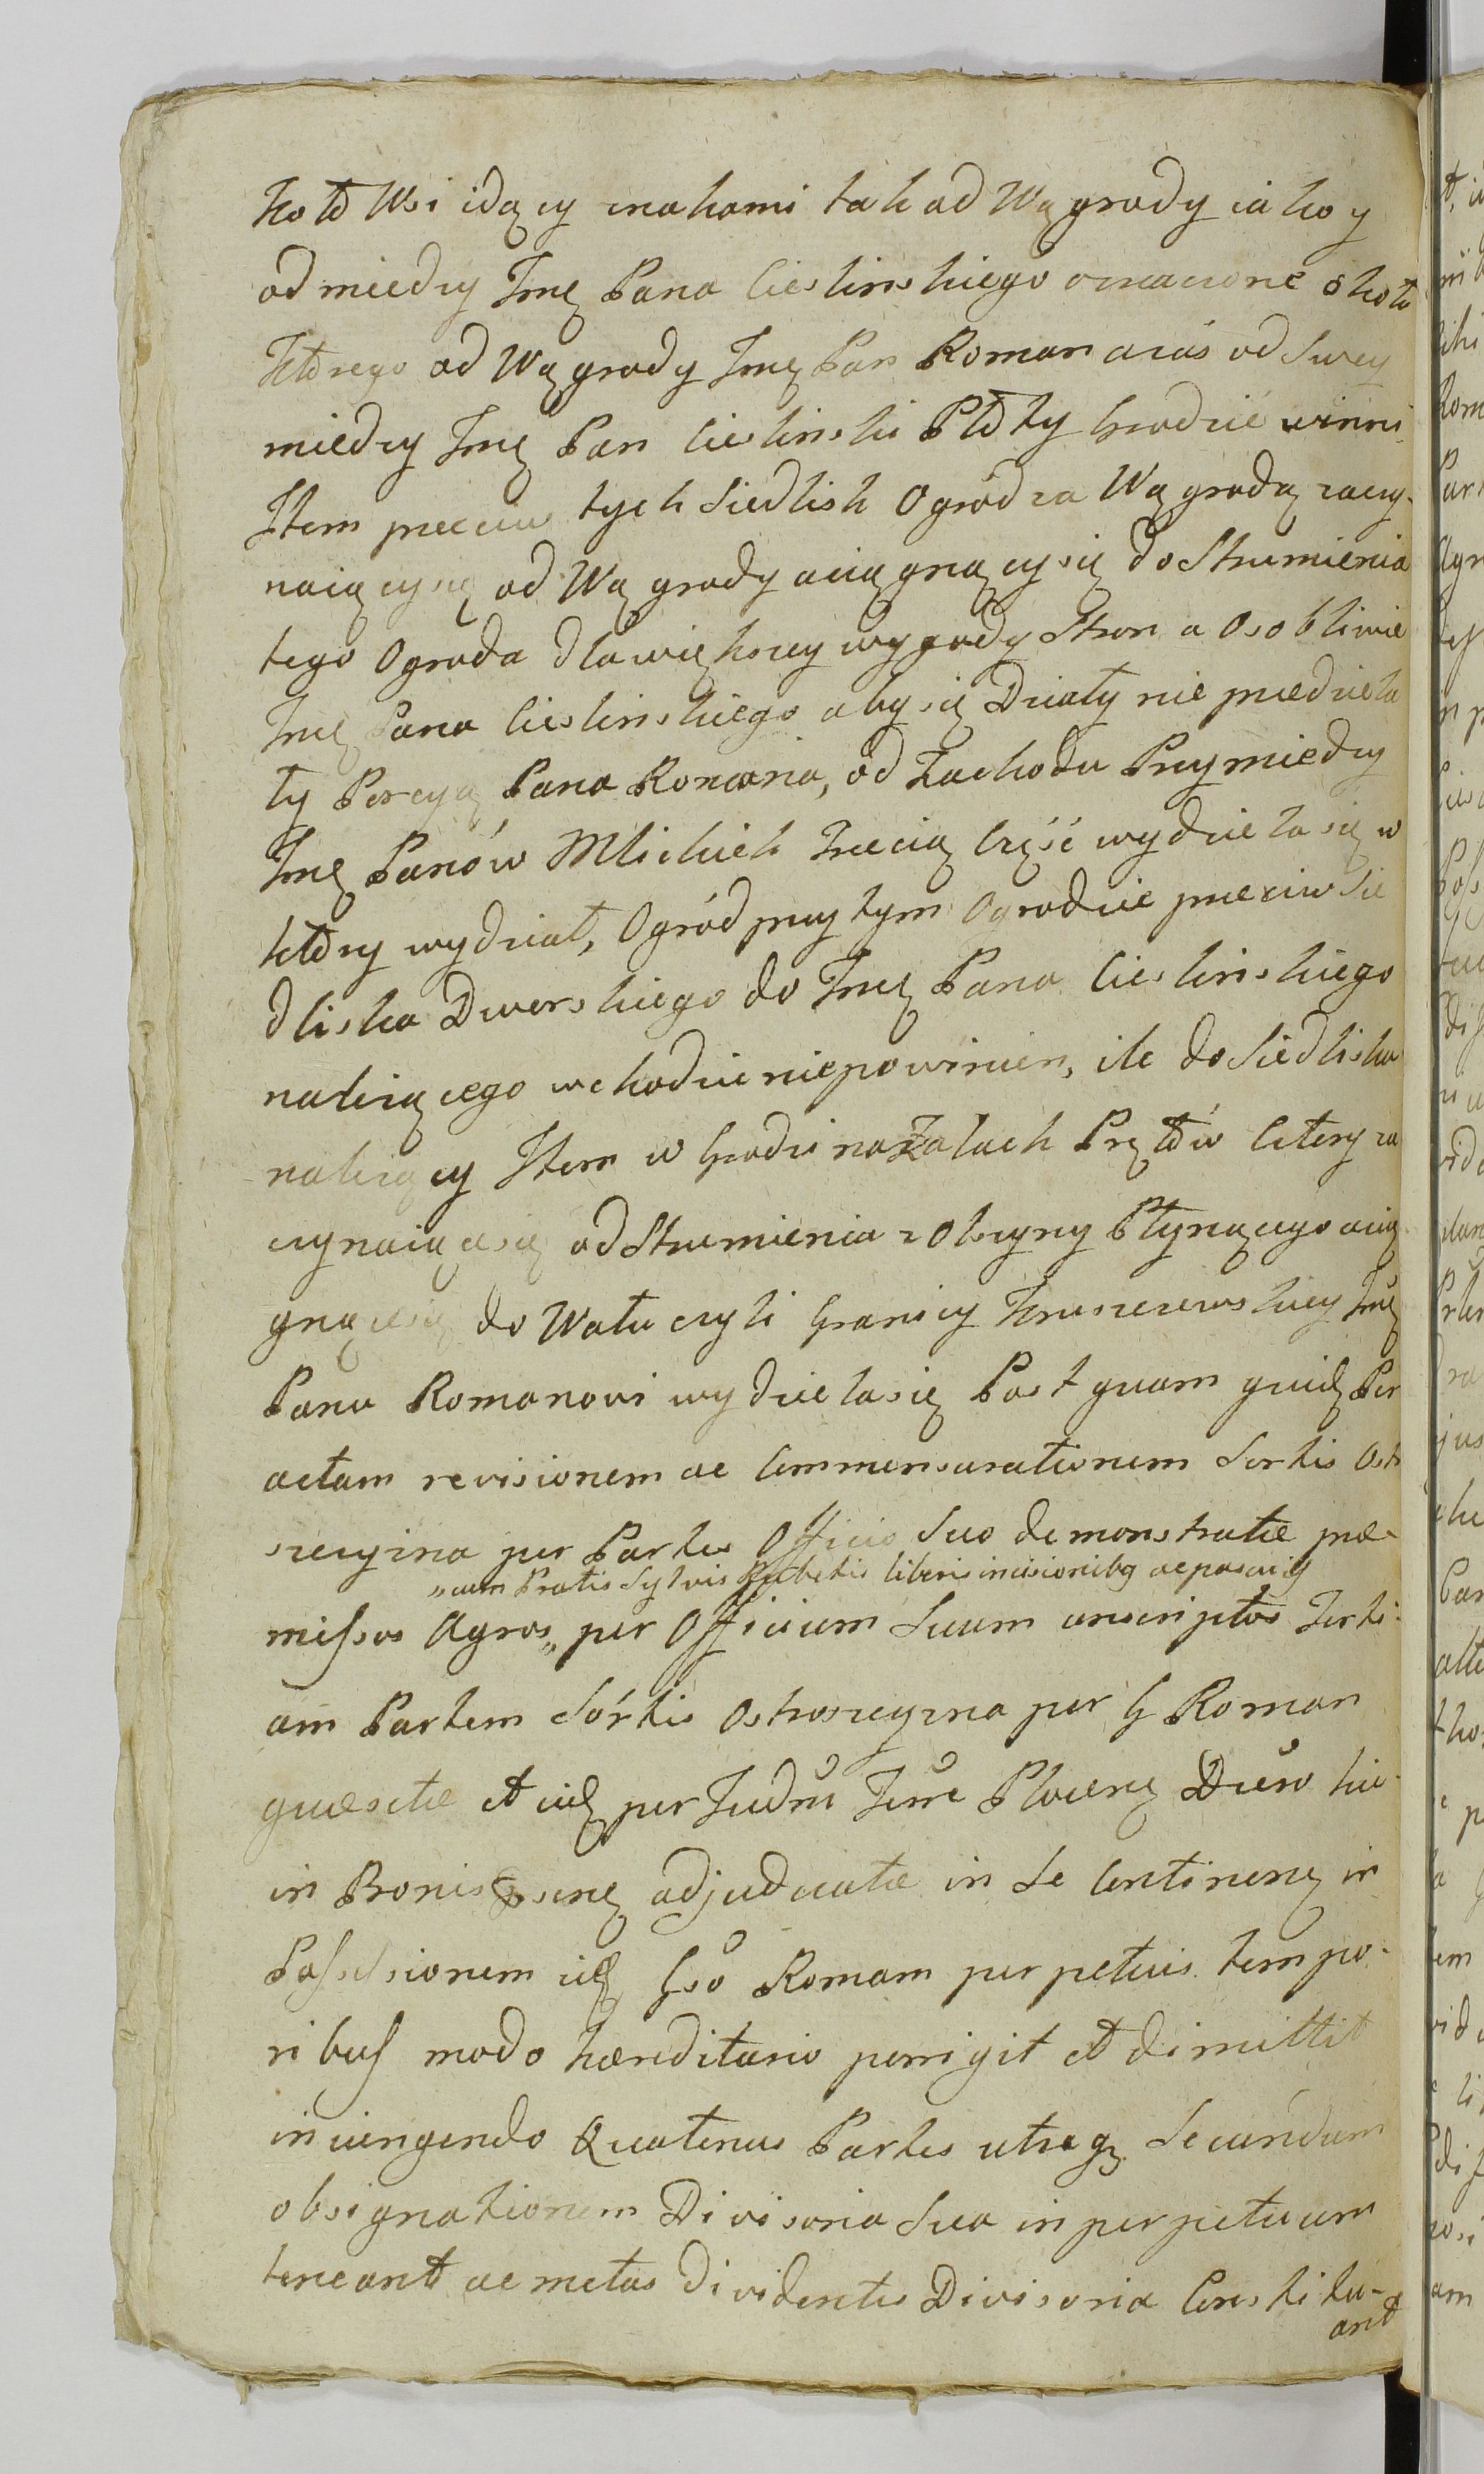 koło Wsi idący znakami tak od Wągrody iako y
od miedzy Jmę Pana Cieslinskiego oznaczone około
którego od Wągrody Jmę Pan Roman azaś od Swey
miedzy Jmę Pan Cieslinski Płoty Grodzić winni
Item przeciw tych Siedlisk Ogród za Wągrodą zaczy-
naiący się od Wągrody aciągnący się do Strumienia
tego Ogroda dla większey wygody Stron a Osobliwie
Jmę Pana Cieslinskiego aby się Działy nie przedziela
ły Porcyą Pana Romana, od Zachodu Przy miedzy
Jmę Panów Mlickich Trzecią Część wydziela się w
który wydział, Ogród przy tym Ogrodzie przeciw Sie
dliska Dworskiego do Jmę Pana Cieslinskiego
należącego wchodzić nie powinien, ile do Siedliska
należący Item w Grodzi na Zalach Prętów Cztery za
czynaiące się od Strumienia z Olszyny Płynącego acią
gnące się do Wału czyli Granicy Kruszczewskiey Jmę
Panu Romanowi wydziela się Post quam quidę Per
actam revisionem ac Commensurationem Sortis Ost
szczyzna per Partes Officio Suo demonstratæ præ-
„cum Pratis Sylvis Rubetis liberis incisionibg ac pascuis
missos Agros„ per Officium Suum conscriptos Terti-
am Partem Sórtis Ostroszczyzna per G Roman
quæsitæ et eidę per Judm Terre Plocenę Divo hic
in Bonis adjudicatæ in Se Continenę in
Possessionem eidę Gso Romam perpetuis tempo-
ribus modo hæreditario porrigit et dimittit
iniungendo Quatenus Partes utręq Secundum
obsignationem Divisoria Sua in perpetuum
teneant ac metas dividentes Divisoria Constitu-
ant